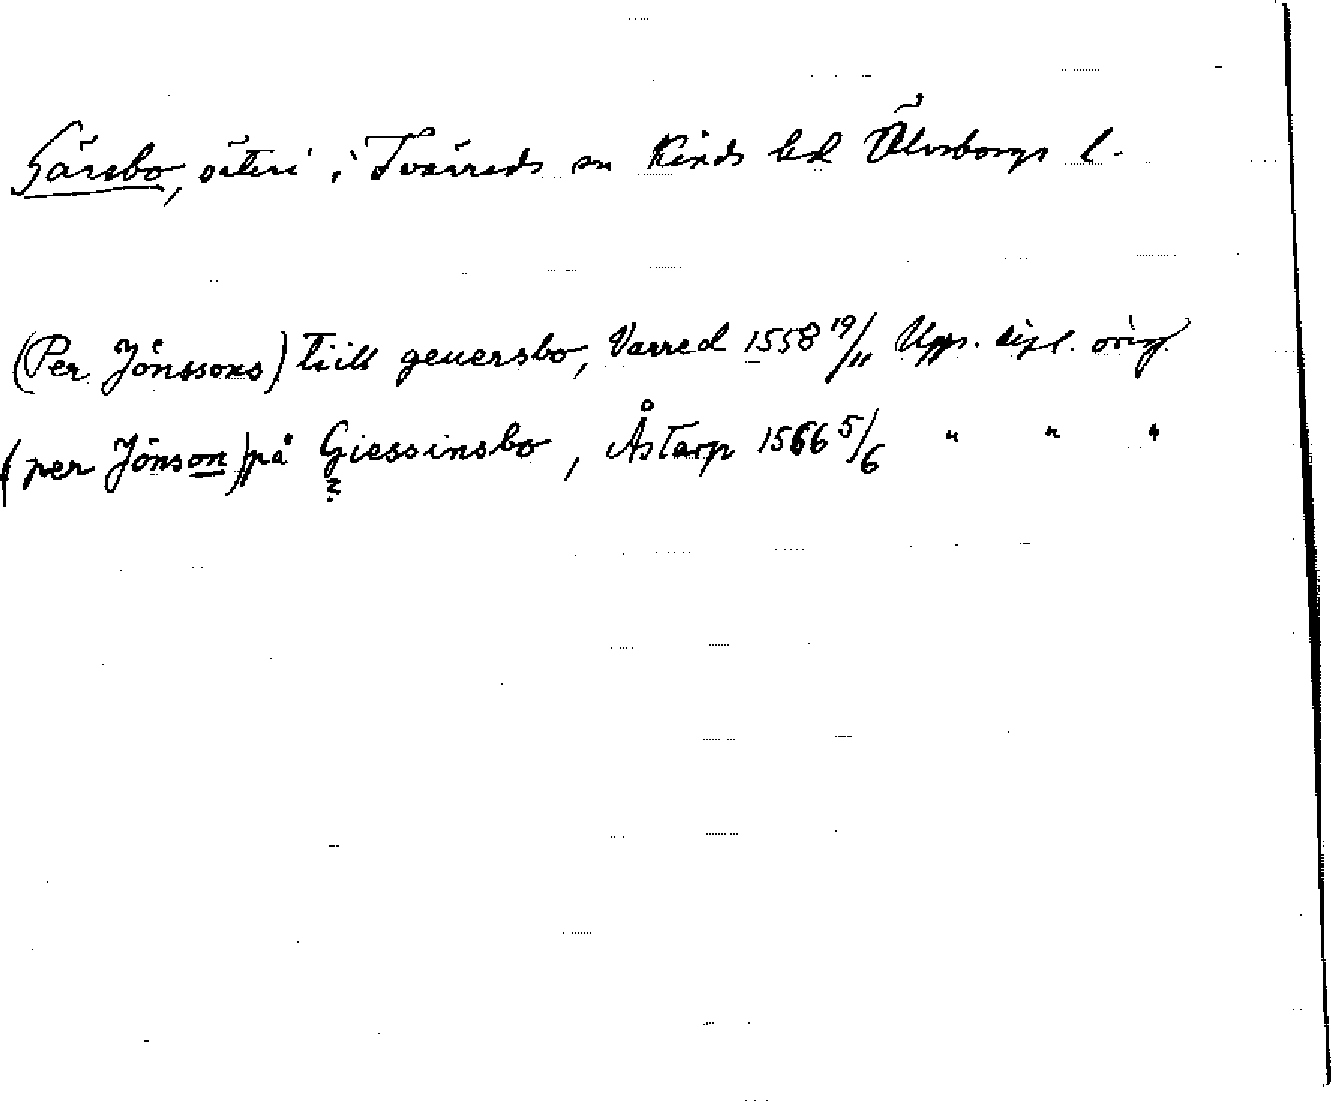 Gärsbo, säteri i Tvärreds sn Kinds hd Älvsborgs l.
(Per Jönssons) tiill geuersbo, Varred 1558 19/11 Upps. dipl. orig.
(per Jönson) på Giessinsbo, Åstarp 1566 5/6 " " "